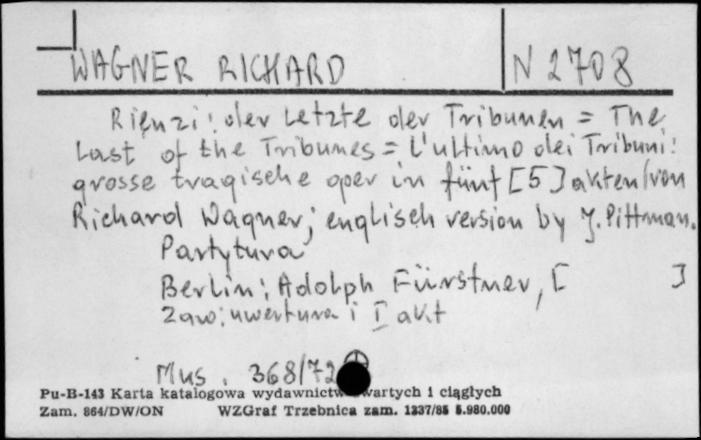 WAGNER RICHARD N 2708
Rienzi: der Letzte der Tribunen = The
Last of the Tribunes = L'ultimo dei Tribuni:
grosse tragische oper in fünf [5] akten/von
Richard Wagner; englisch version by J. Pittman.
Partytura
Berlin: Adolph Fürstner, [ ]
Zaw: uwertura i I akt
Mus. 368/72
Pu-B-143 Karta katalogowa wydawnictw zwartych i ciągłych
Zam. 864/DW/ON WZGraf Trzebnica zam. 1237/85 5.980.000